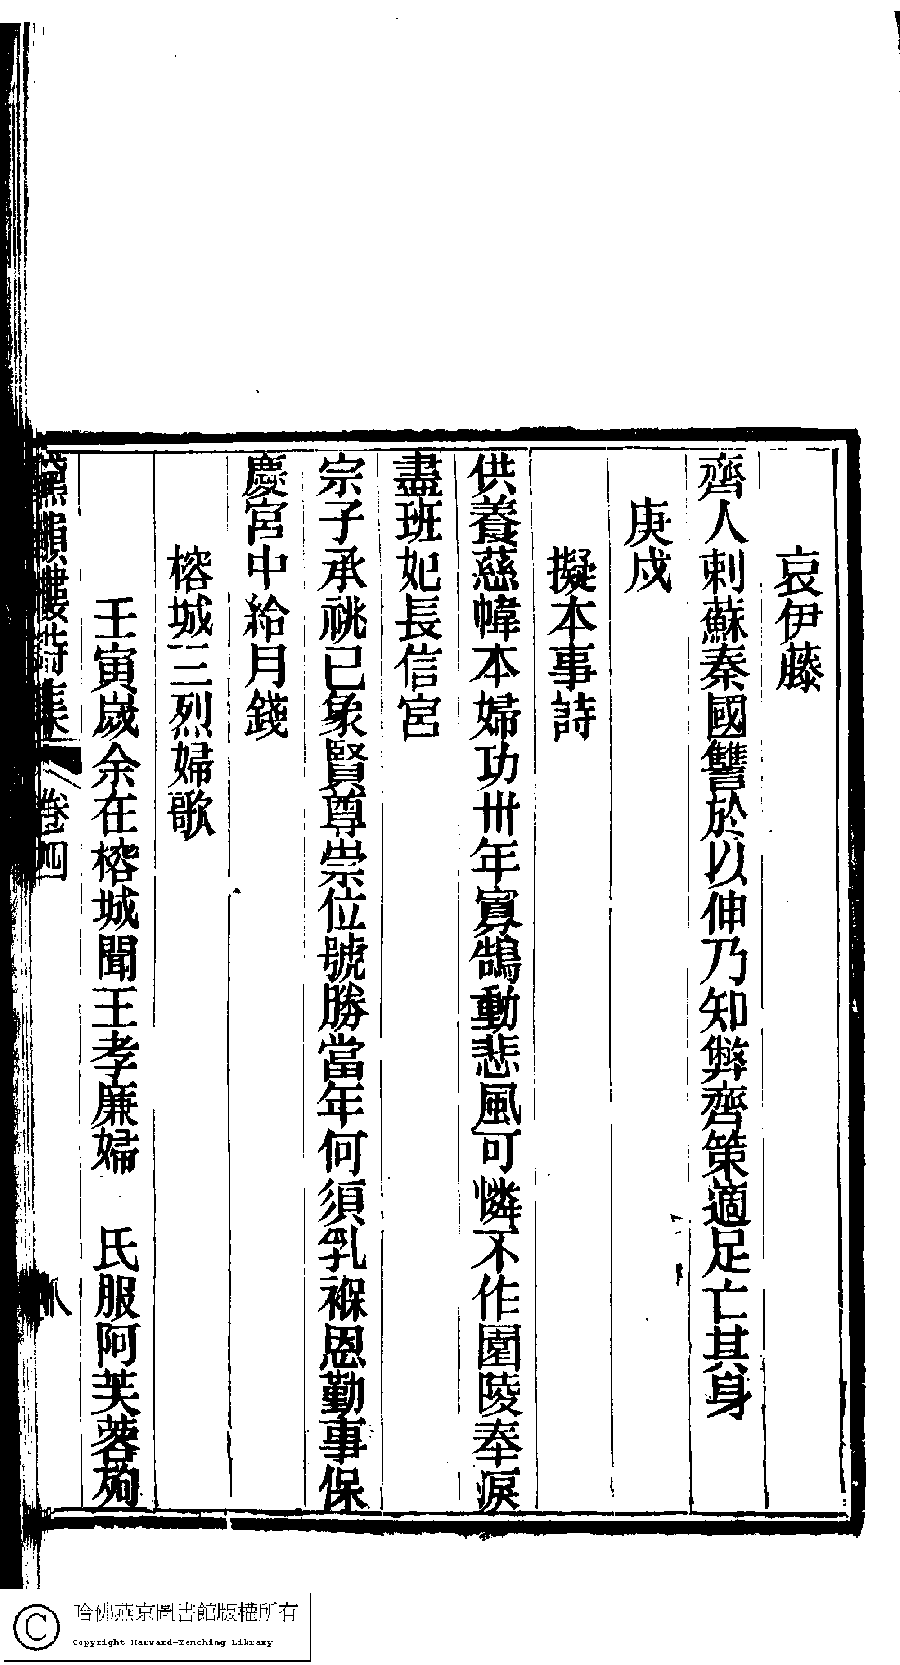 哀伊藤
齊人刺蘇秦國讐於以伸乃知弊齊策適足亡其身
庚戌
擬本事詩
供養慈幃本婦功卅年寡鵠動悲風可憐不作園陵奉淚
盡班妃長信宮
宗子承祧已象賢尊崇位號勝當年何須乳褓恩勤事保
慶宮中給月錢
榕城三烈婦歌
壬寅歲余在榕城聞王孝廉婦　氏服阿芙蓉殉
黛韻樓詩集 卷四 八
哈佛燕京圖書館版權所有
Copyright Harvard-Yenching Library